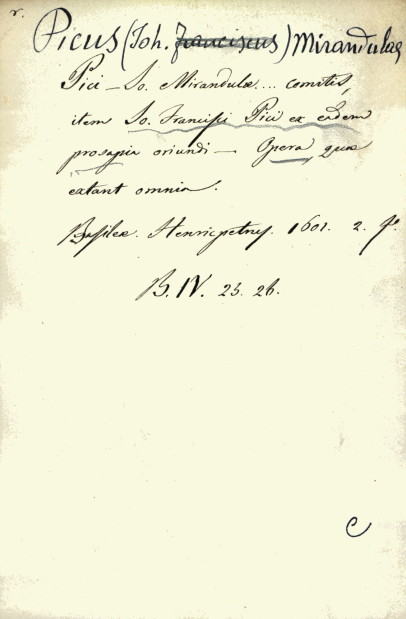 v.
Picus (Joh. Franciscus) Mirandulae
Pici – Jo. Mirandulae... comitis,
item Jo. Francisci Pici ex eadem
prosapia oriundi – Opera, quae
extant omnia.
Basileae. Henricpetrus. 1601. 2. fo.
B. IV. 25. 26.
C